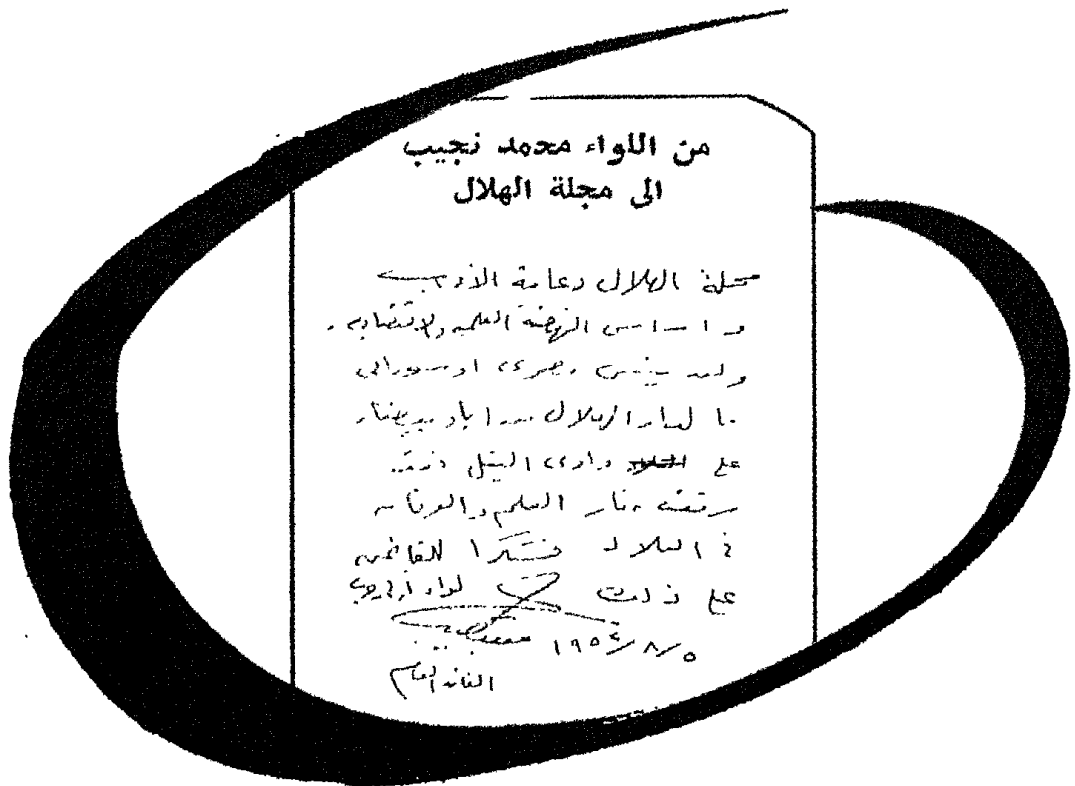 من اللواء محمد نجيب
الى مجلة الهلال
مجلة الهلال دعامة الأدب
و اساس النهضة العلمية والاقتصاديه .
ولن ينسى مصرى او سودانى
ما لدار الهلال من اياد بيضاء
على وادى النيل
رفعت منار العلم والعرفان
فى البلاد فشكرا للقائمين
على ذلك لواء أ.ح
محمد نجيب ٥/٨/١٩٥٢
القائد العام